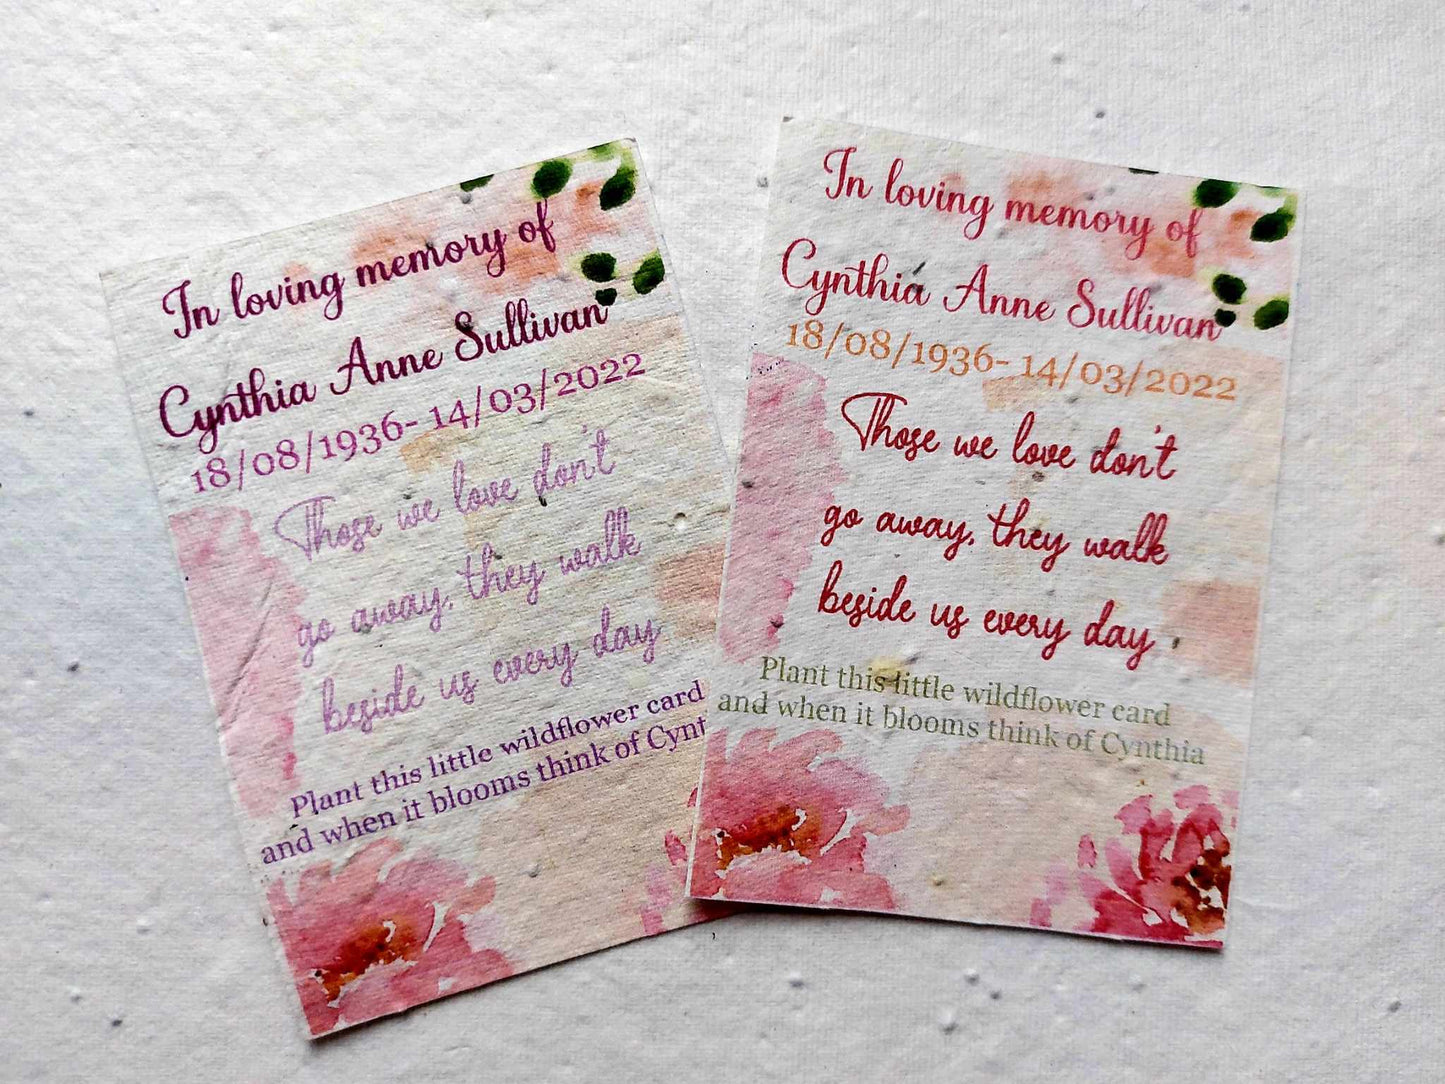 In loving memory of
Cynthia Anne Sullivan
18/08/1936- 14/03/2022
Those we love don't
go away, they walk
beside us every day
Plant this little wildflower card
and when it blooms think of Cynt
In loving memory of
Cynthia Anne Sullivan
18/08/1936- 14/03/2022
Those we love don't
go away, they walk
beside us every day
Plant this little wildflower card
and when it blooms think of Cynthia